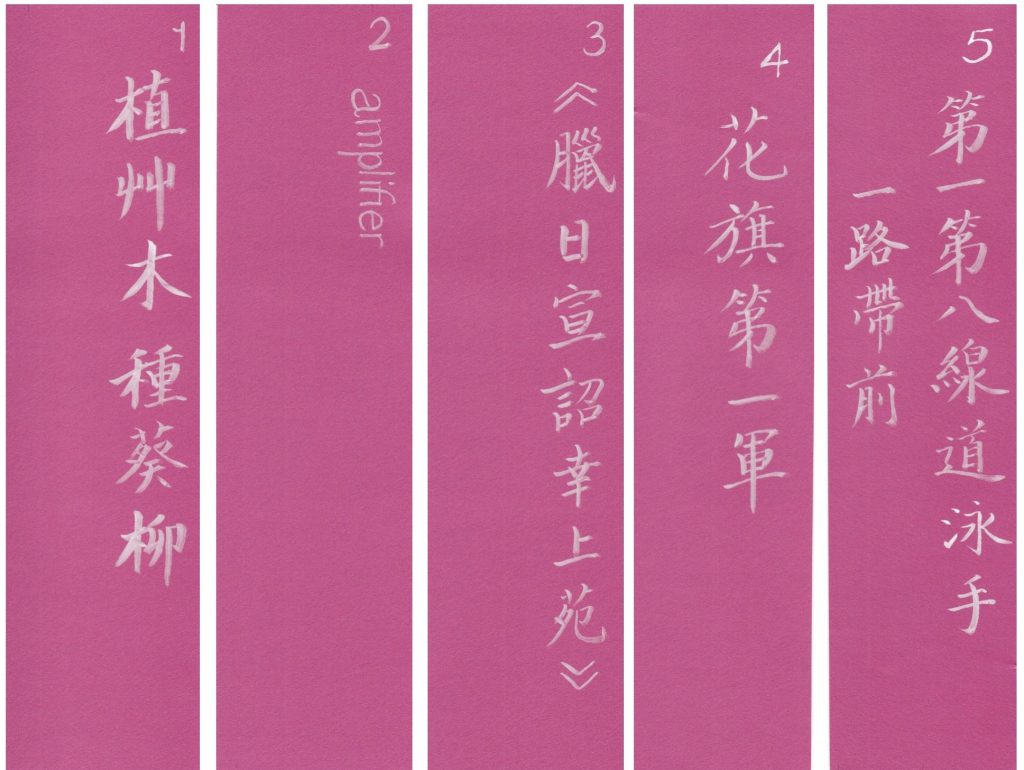 1
植艸木 種葵柳
2
amplifier
3
《臘日宣詔幸上苑》
4
花旗第一軍
5
第一第八線道泳手
一路帶前